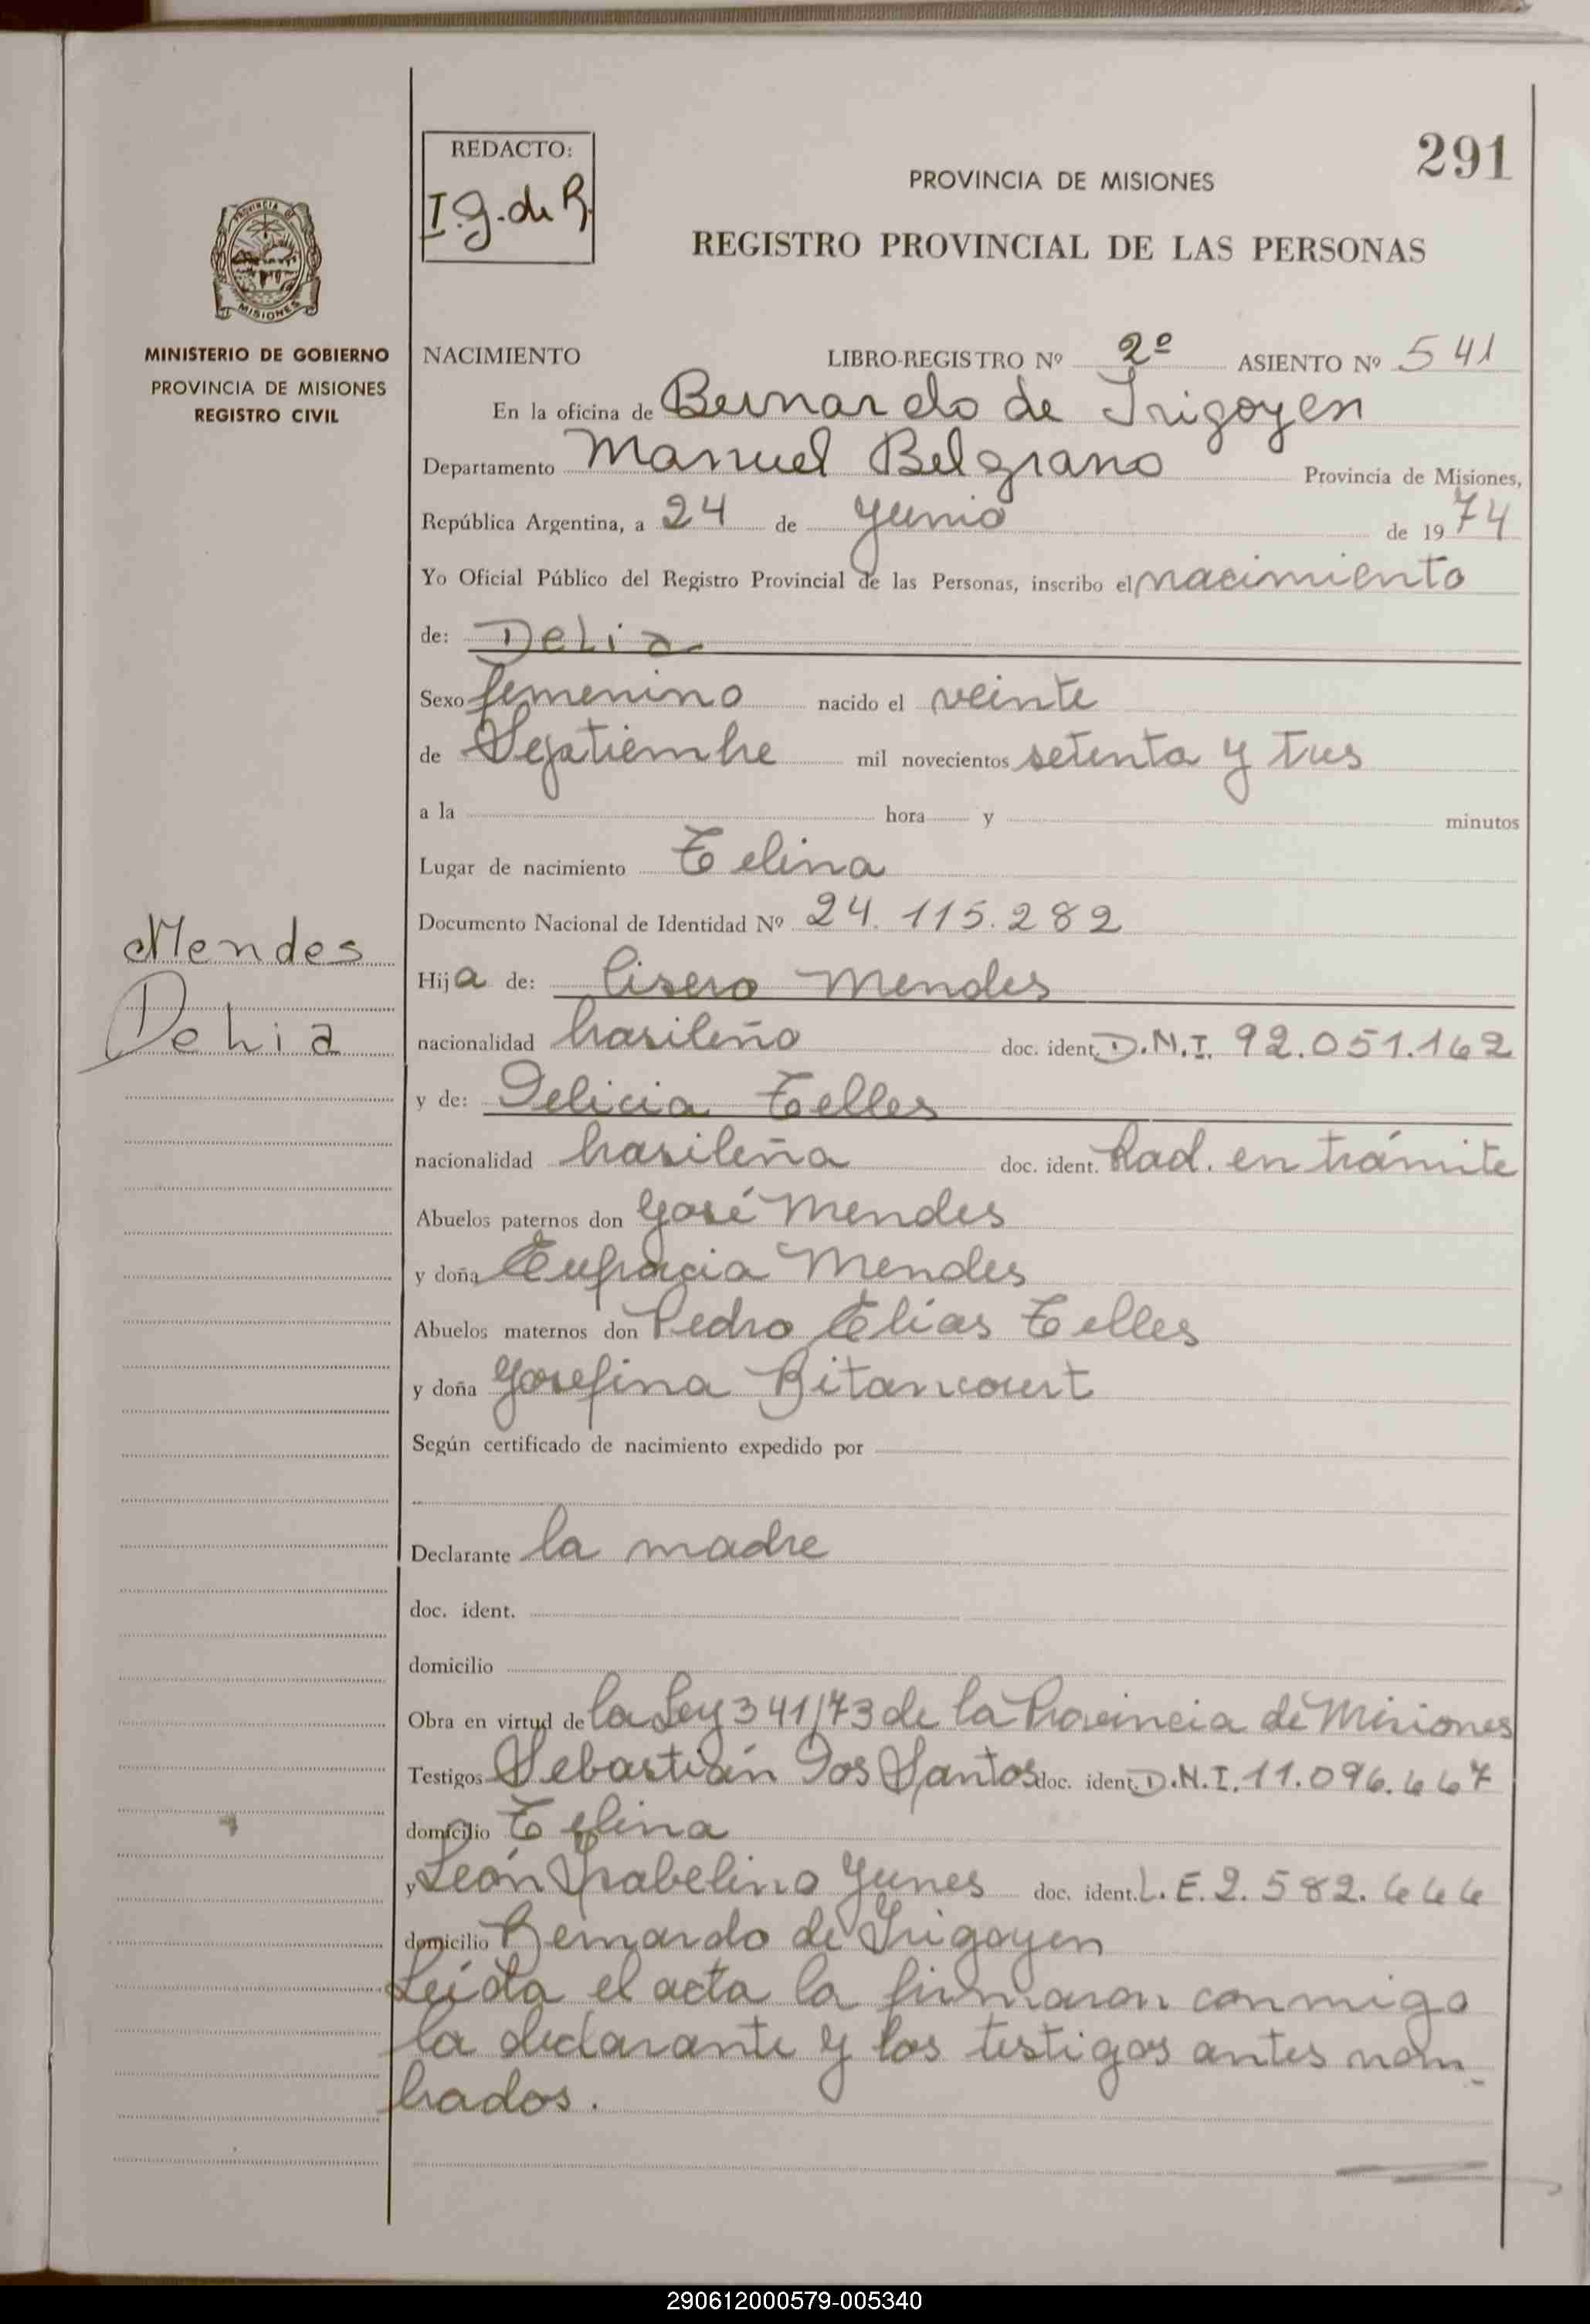 291
REDACTO:
I.g. de R.
PROVINCIA DE MISIONES
REGISTRO PROVINCIAL DE LAS PERSONAS
PROVINCIA DE
MISIONES
MINISTERIO DE GOBIERNO
PROVINCIA DE MISIONES
REGISTRO CIVIL
NACIMIENTO LIBRO-REGISTRO Nº 2º ASIENTO Nº 541
En la oficina de Bernardo de Irigoyen
Departamento Manuel Belgrano Provincia de Misiones,
República Argentina, a 24 de Junio de 1974
Yo Oficial Público del Registro Provincial de las Personas, inscribo el nacimiento
de: Delia
Sexo femenino nacido el veinte
de Septiembre mil novecientos setenta y tres
a la hora y minutos
Lugar de nacimiento Telina
Documento Nacional de Identidad Nº 24.115.282
Mendes
Delia
Hija de: Cisero Mendes
nacionalidad brasileño doc. ident. D.N.I. 92.051.162
y de: Delicia Telles
nacionalidad brasileña doc. ident. Rad. en trámite
Abuelos paternos don José Mendes
y doña Eufracia Mendes
Abuelos maternos don Pedro Elías Telles
y doña Josefina Bitancourt
Según certificado de nacimiento expedido por
Declarante la madre
doc. ident.
domicilio
Obra en virtud de la Ley 341/73 de la Provincia de Misiones
Testigos Sebastián Dos Santos doc. ident. D.N.I. 11.096.667
domicilio Telina
y León Isabelino Yunes doc. ident. L.E. 2.582.666
domicilio Bernardo de Irigoyen
Leída el acta la firmaron conmigo
la declarante y los testigos antes nom-
brados.
290612000579-005340